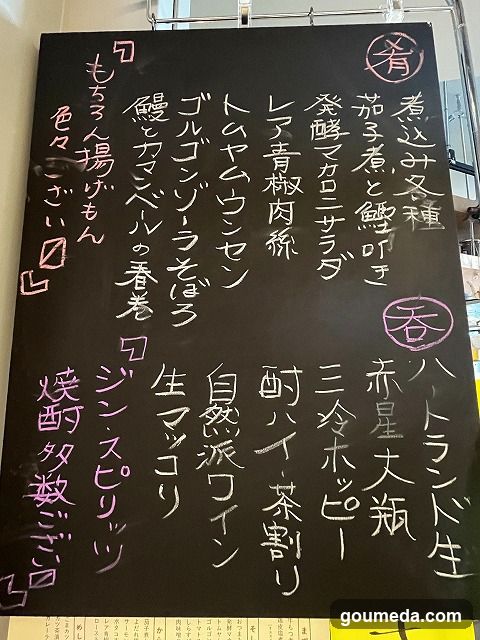 肴
煮込み各種
茄子煮と鰹叩き
発酵マカロニサラダ
レア青椒肉絲
トムヤムウンセン
ゴルゴンゾーラそぼろ
鰻とカマンベールの春巻
『もちろん揚げもん
色々ござい〼』
呑
ハートランド生
赤星大瓶
三冷ホッピー
酎ハイ・茶割り
自然派ワイン
生マッコリ
『ジン・スピリッツ
焼酎多数ござい〼』
goumeda.com